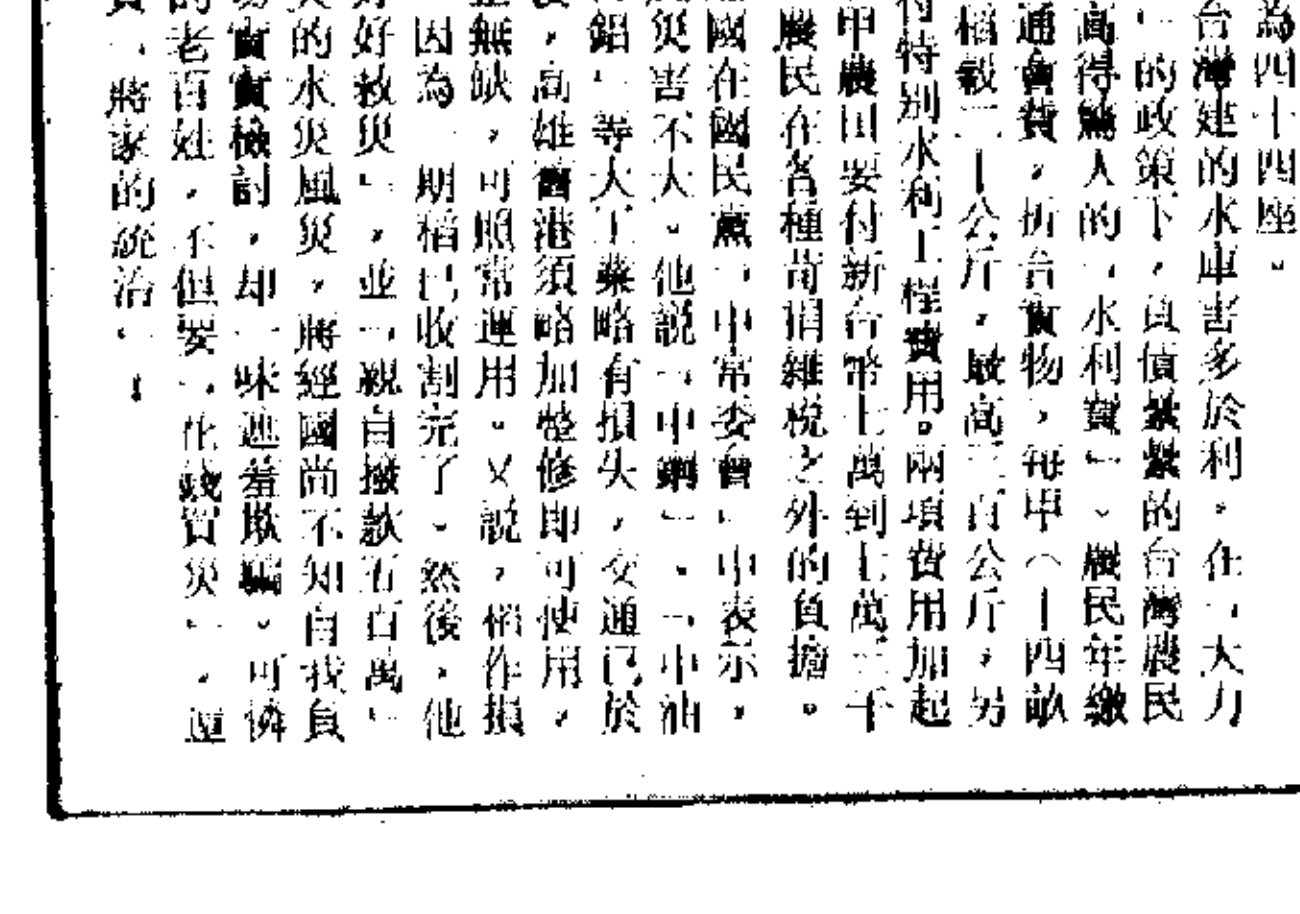 為四十四座。
台灣建的水庫害多於利。在「大力
」的政策下,負債纍纍的台灣農民
高得驚人的「水利費」、農民年繳
通會費,折合實物,每甲(十四畝
稻穀二十公斤,最高三百公斤,另
付特別水利工程費用。兩項費用加起
甲農田要付新台幣七萬到七萬三千
農民在各種苛捐雜稅之外的負擔。
國在國民黨「中常委會」中表示,
災害不大。他說「中鋼」、「中油
鋁」等大工業略有損失,交通已於
,高雄舊港須略加整修即可使用,
無缺,可照常運用。又說,稻作損
因為一期稻已收割完了。然後,他
好救災」,並「親自撥款五百萬」
的水災風災,蔣經國尚不知自我負
實實檢討,却一味遮羞欺騙。可憐
的老百姓,不但要「花錢買災」,還
「蔣家的統治」!